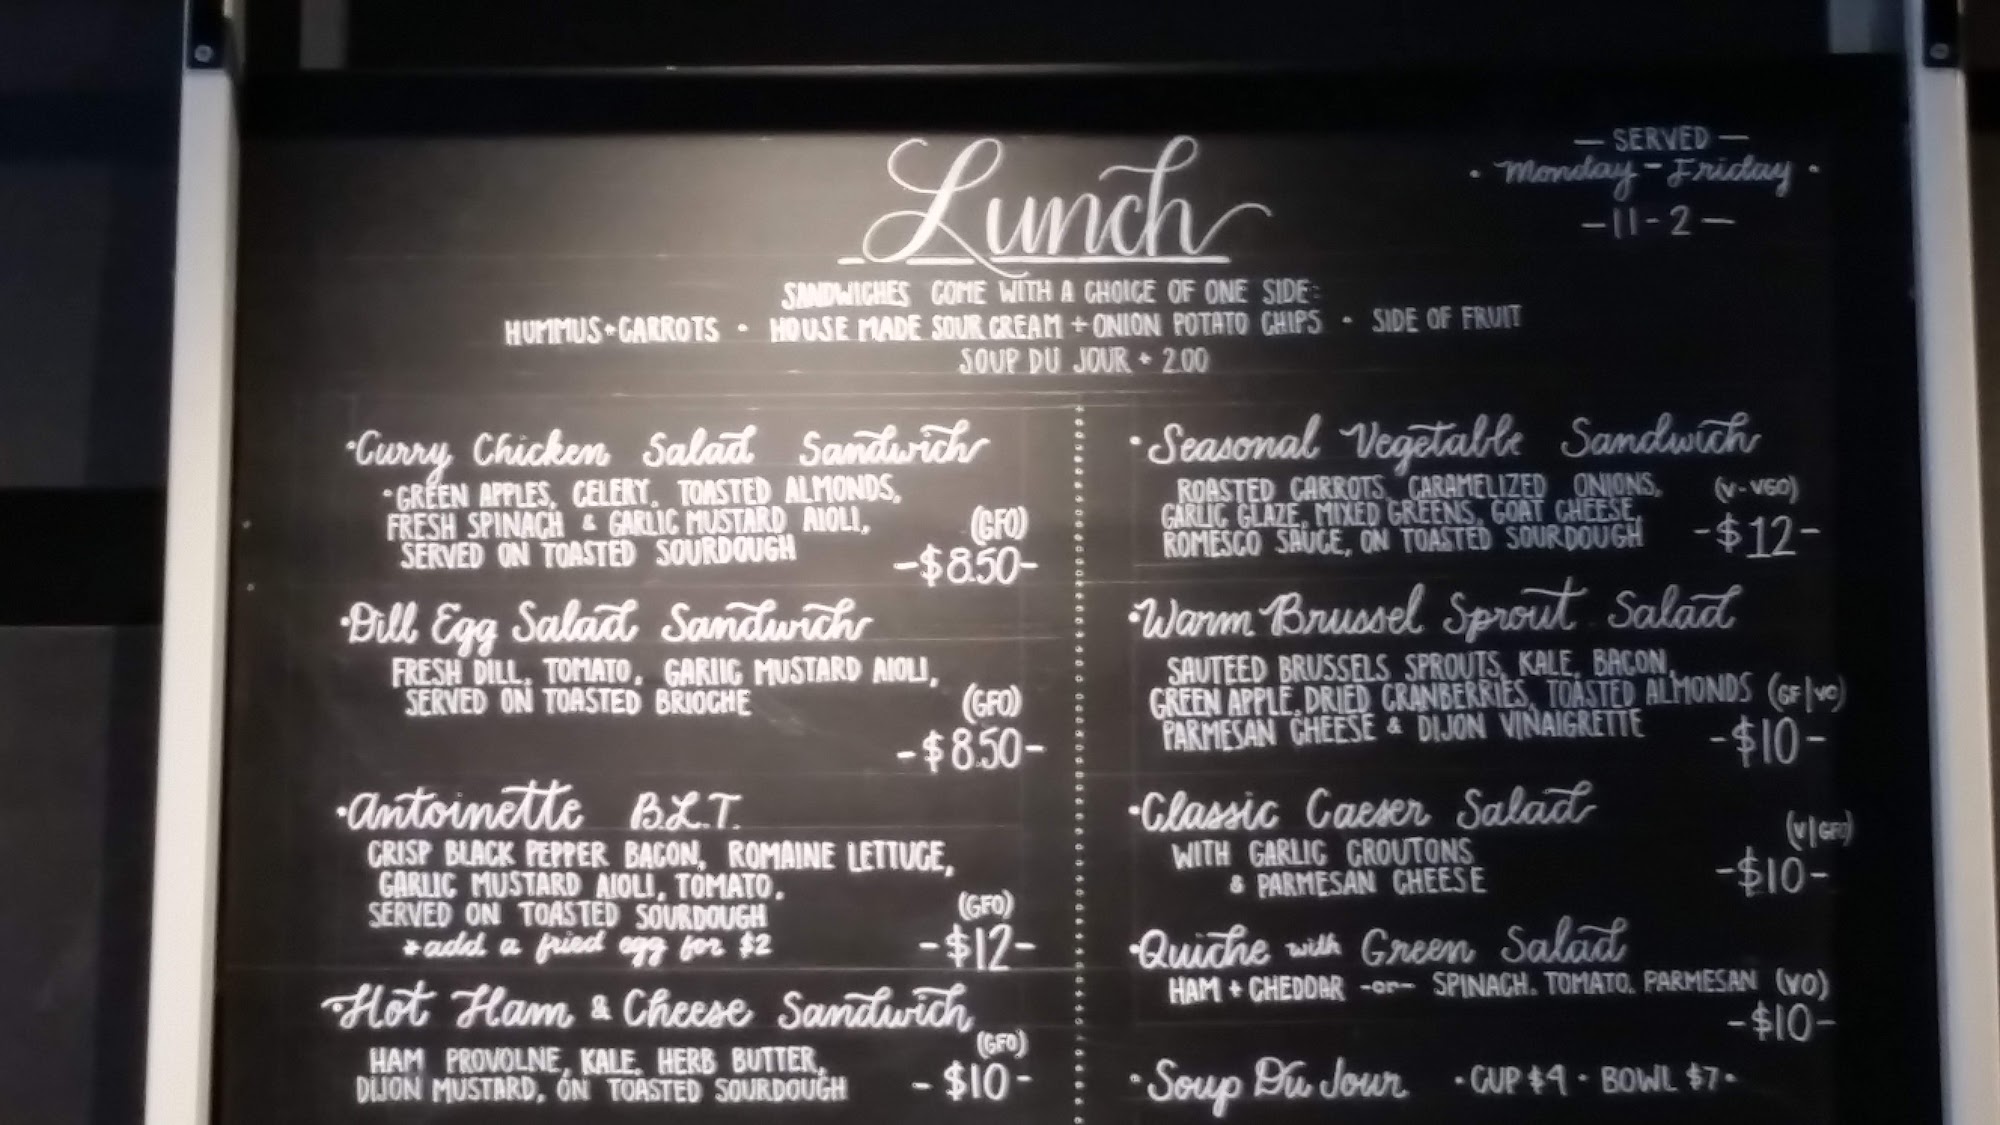 Lunch
— SERVED —
· Monday - Friday ·
— 11 - 2 —
SANDWICHES COME WITH A CHOICE OF ONE SIDE:
HUMMUS + CARROTS · HOUSE MADE SOUR CREAM + ONION POTATO CHIPS · SIDE OF FRUIT
SOUP DU JOUR + 2.00
·Curry Chicken Salad Sandwich
·GREEN APPLES, CELERY, TOASTED ALMONDS,
FRESH SPINACH & GARLIC MUSTARD AIOLI,
SERVED ON TOASTED SOURDOUGH
(GFO)
-$8.50-
·Dill Egg Salad Sandwich
FRESH DILL, TOMATO, GARLIC MUSTARD AIOLI,
SERVED ON TOASTED BRIOCHE
(GFO)
-$8.50-
·Antoinette B.L.T.
CRISP BLACK PEPPER BACON, ROMAINE LETTUCE,
GARLIC MUSTARD AIOLI, TOMATO,
SERVED ON TOASTED SOURDOUGH
*add a fried egg for $2
(GFO)
-$12-
·Hot Ham & Cheese Sandwich
HAM PROVOLNE, KALE, HERB BUTTER,
DIJON MUSTARD, ON TOASTED SOURDOUGH
(GFO)
-$10-
·Seasonal Vegetable Sandwich
ROASTED CARROTS, CARAMELIZED ONIONS,
GARLIC GLAZE, MIXED GREENS, GOAT CHEESE,
ROMESCO SAUCE, ON TOASTED SOURDOUGH
(V-VGO)
-$12-
·Warm Brussel Sprout Salad
SAUTEED BRUSSELS SPROUTS, KALE, BACON,
GREEN APPLE, DRIED CRANBERRIES, TOASTED ALMONDS (GF|VO)
PARMESAN CHEESE & DIJON VINAIGRETTE
-$10-
·Classic Caeser Salad
WITH GARLIC CROUTONS
& PARMESAN CHEESE
(V|GFO)
-$10-
·Quiche with Green Salad
HAM + CHEDDAR -or- SPINACH, TOMATO, PARMESAN (VO)
-$10-
·Soup Du Jour ·CUP $4 · BOWL $7·